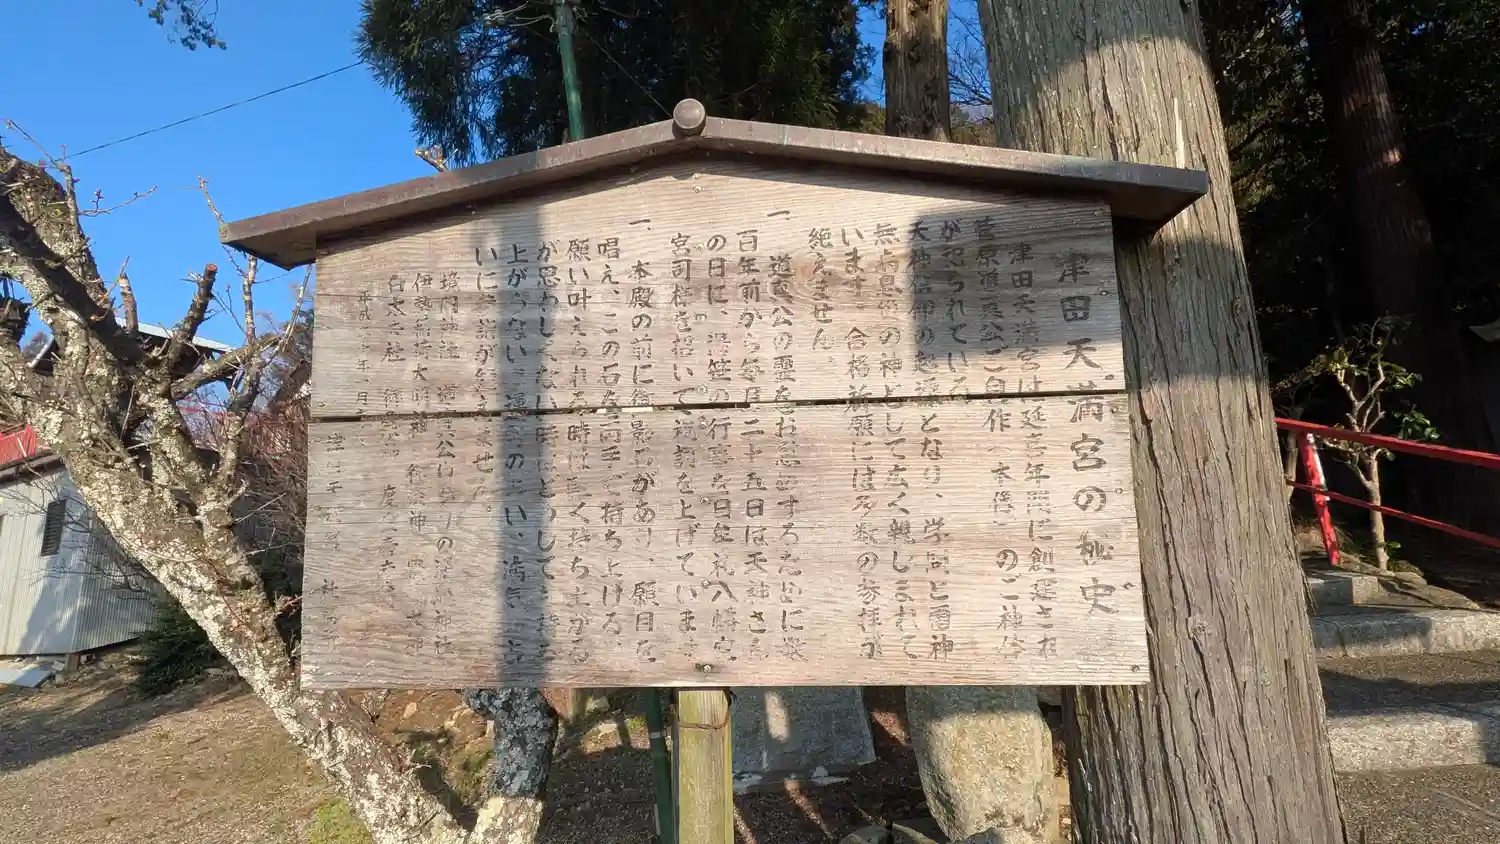 津田天満宮の秘史
津田天満宮は延喜年間に創建され
菅原道真公ご自作(本像)のご神体
が祀られている。
天神信仰の起源となり、学問と雷神
無病息災の神として広く親しまれて
います。合格祈願には多数の参拝が
絶えません。
一、道真公の霊をお慰めするために数
百年前から毎月二十五日は天神さん
の日に、湯笹の行事を日牟礼八幡宮
宮司様を招いて祝詞を上げています
一、本殿の前に御影石があり、願目を
唱え、この石を両手で持ち上げる、
願い叶えられる時は軽く持ち上がる
が思わしくない時はどうしても持ち
上がらない。運気のよい、満気
いに参詣が絶えません。
境内神社 道真公 の 神社
伊勢 大明神
白太夫社
平成 年 月
津田